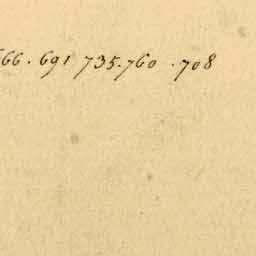 66 . 691 735 . 760 . 708